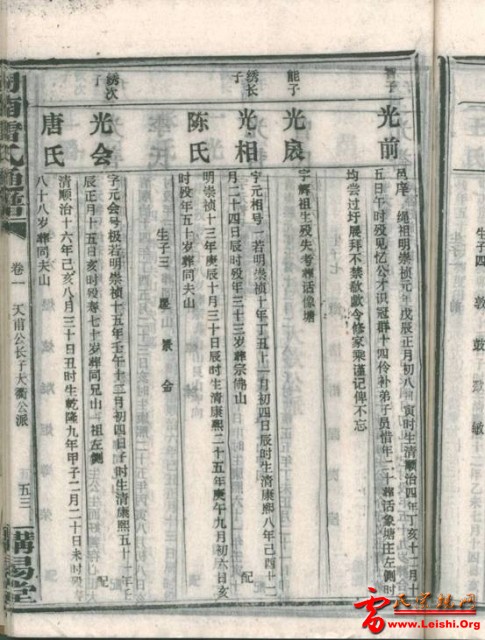 智子
光前
邑庠 绳祖明崇祯元年戊辰正月初八 寅时生清顺治四年丁亥十一月十
五日午时殁见忆公才识冠群十四伶补弟子员惜年二十葬活象塘庄左侧时
均尝过圩展拜不禁欷歔今修家乘谨记俾不忘
能子
光
字辉祖生殁失考葬活像塘
绣长子
光相
字元相号一若明崇祯十年丁丑十一月初四日辰时生清康熙八年己酉十二
月二十四日辰时殁年三十三岁葬宗佛山 配
陈氏
明崇祯十三年庚辰十月三十日辰时生清康熙二十五年庚午九月初六日亥
时殁年五十岁葬同夫山
生子三
绣次子
光会
字元会号极若明崇祯十五年壬午十二月初四日子时生清康熙五十一年壬
辰正月十五日亥时殁寿七十岁葬同兄山一祖左侧 配
唐氏
清顺治十六年己亥八月三十日丑时生乾隆九年甲子二月二十日未时殁
八十八岁葬同夫山
氏通谱
卷一 天甫公长子大衢公派
五三
讲易堂
雷氏宗亲网
www.Leishi.Org